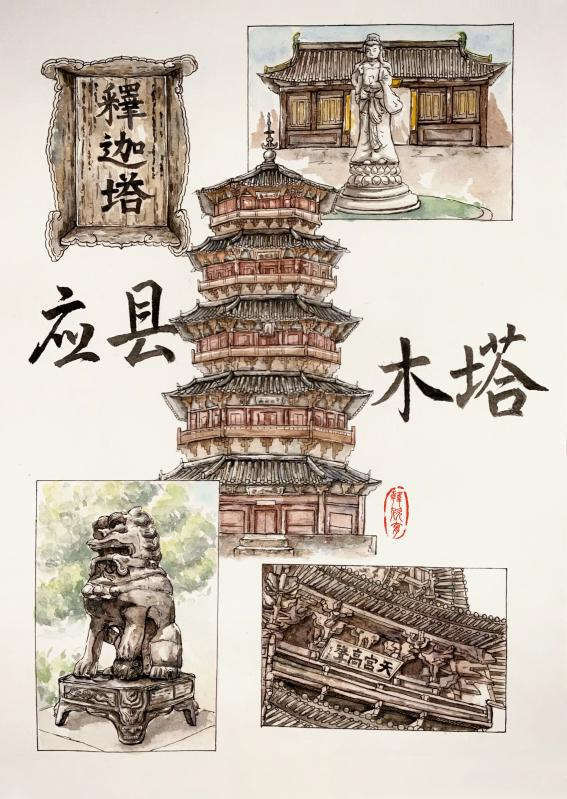 釋迦塔
应县
木塔
天宫高聳